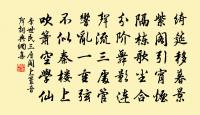 綺筵移暮景
紫閣引宵煙
隔棟歌塵合
分階舞影連
聲流三處管
響亂一重弦
不似秦樓上
吹簫空學仙
李世民三層閣上置音
詩詞典網集